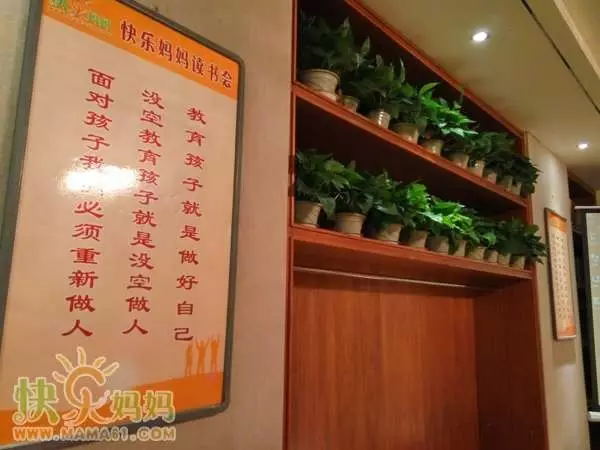 快乐妈妈
快乐妈妈读书会
教育孩子就是做好自己
没空教育孩子就是没空做人
面对孩子我必须重新做人
快乐妈妈
WWW.MAMA61.COM